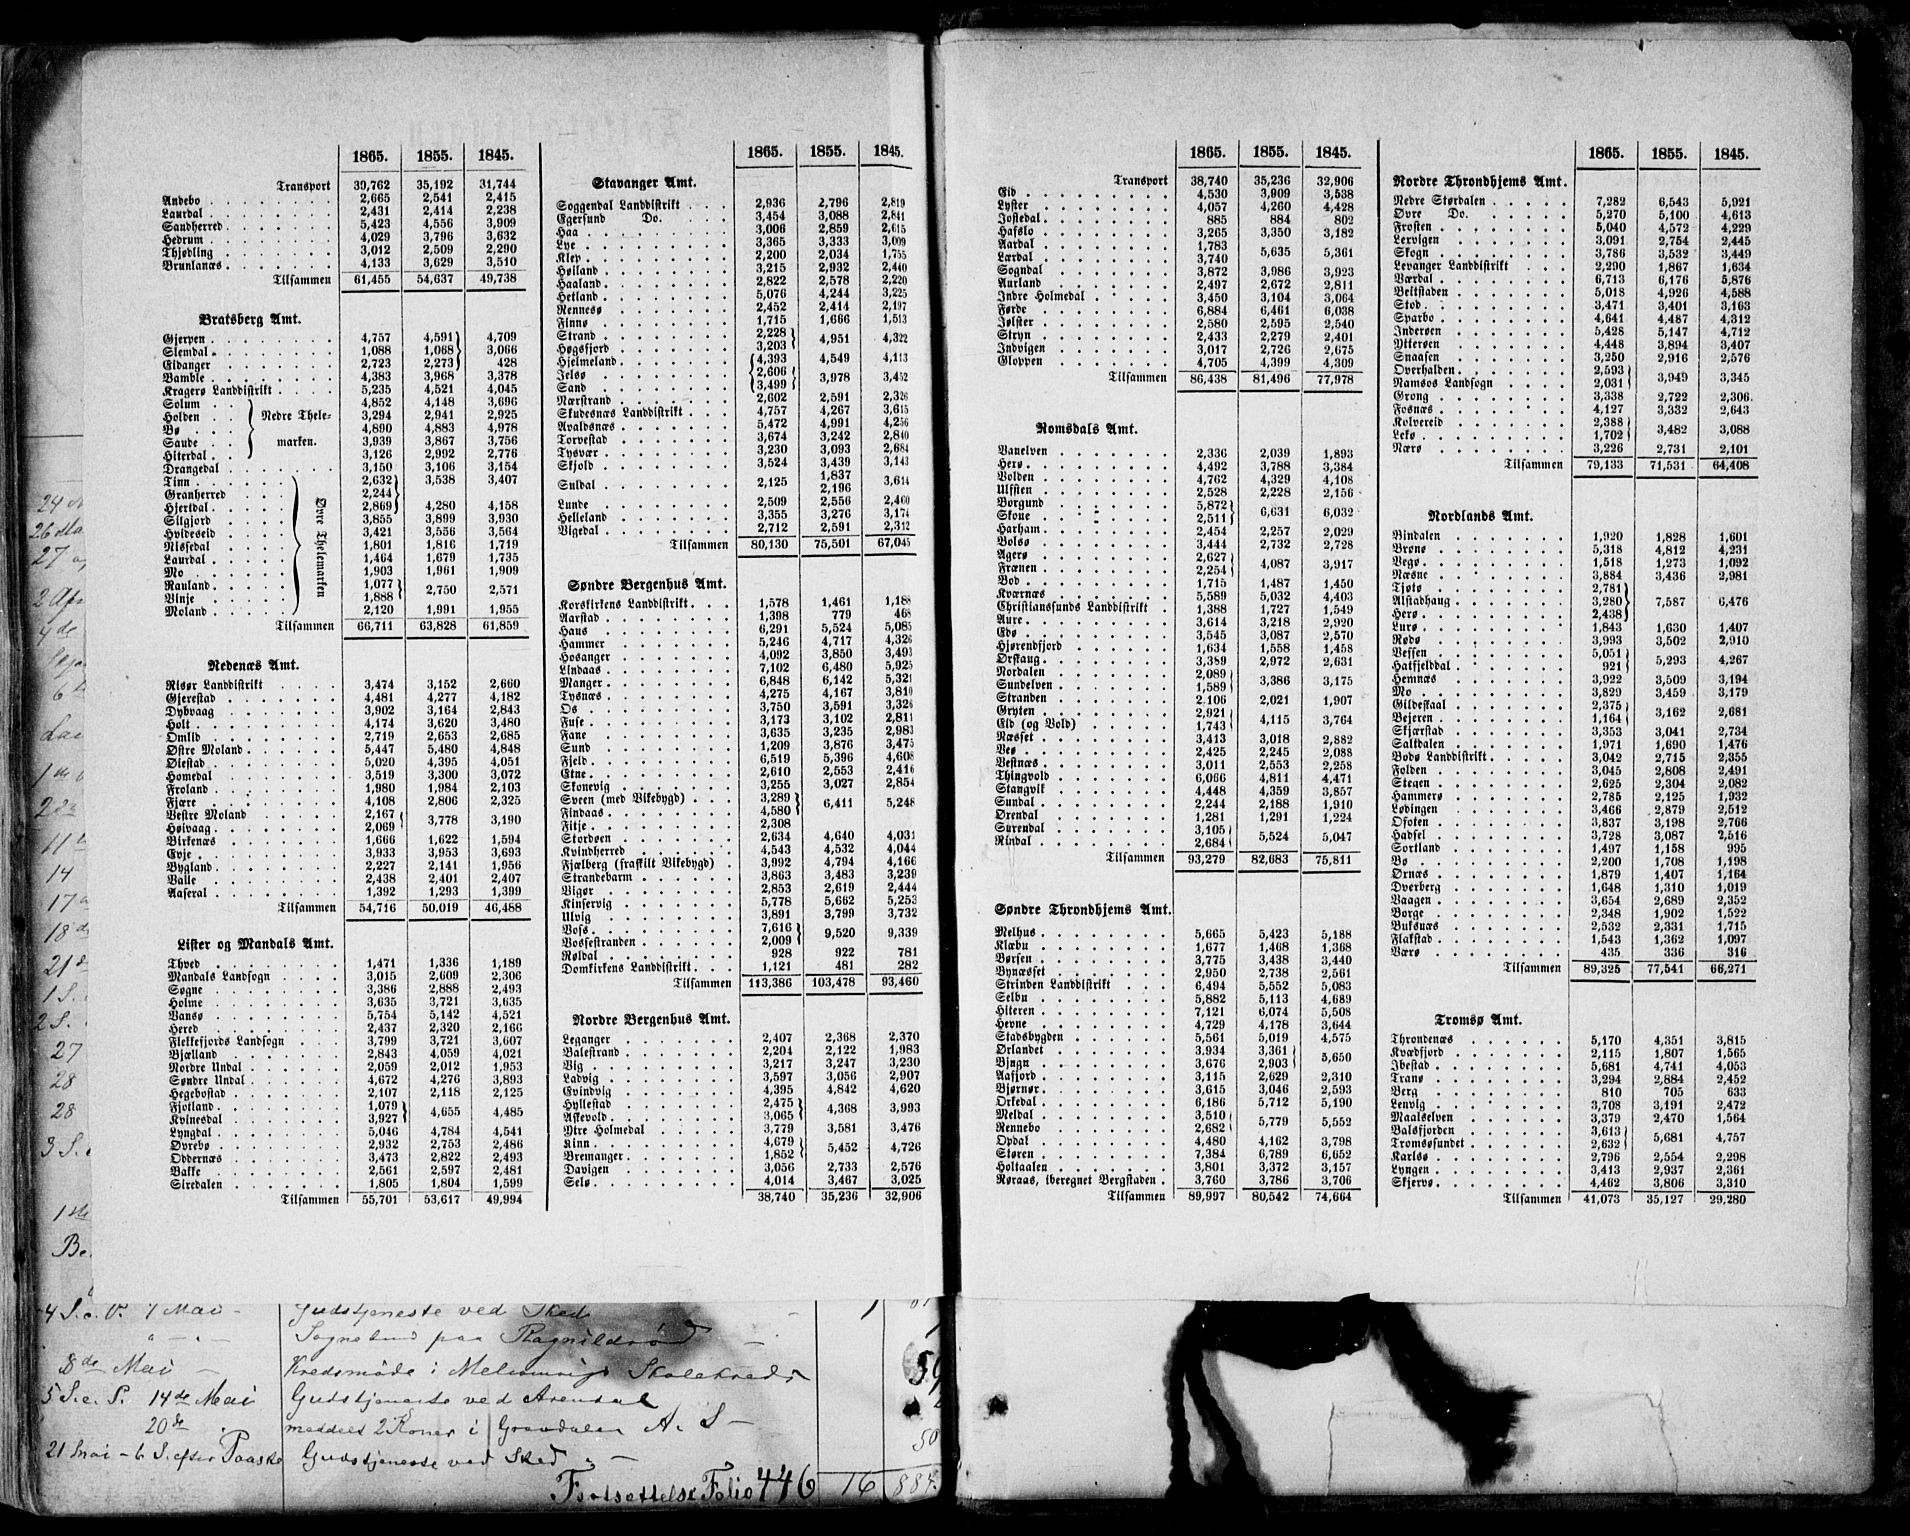 1865. 1855. 1845.
Transport 39,762 35,192 31,744
Andebo 2,665 2,541 2,415
Laurdal 2,431 2,414 2,238
Sandherred 5,423 4,556 3,909
Hedrum 4,029 3,796 3,632
Thjødling 3,012 2,509 2,290
Brunlanæs 4,133 3,629 3,510
Tilsammen 61,455 54,637 49,738
Bratsberg Amt.
Gjerpen 4,757 4,591 } 4,709
Slemdal 1,088 1,068 } 3,066
Eidanger 2,723 2,273 } 428
Bamble 4,383 3,968 3,378
Kragerø Landdistrikt 5,235 4,521 4,045
Solum 4,852 4,148 3,696
Holden } Nedre Thele- 3,294 2,941 2,925
Bø 4,890 4,883 4,978
Saude } marken. 3,939 3,867 3,756
Hiterdal 3,126 2,992 2,776
Drangedal 3,150 3,106 3,154
Tinn 2,632 } 3,538 3,407
Granherred 2,244 }
Hjertdal 2,869 } 4,280 4,158
Silgjord 3,855 3,899 3,930
Hvideseid 3,421 3,556 3,564
Nissedal 1,801 1,816 1,719
Laurdal 1,464 1,679 1,735
Mo 1,903 1,961 1,909
Rauland 1,077 } 2,750 2,571
Vinje 1,888 }
Moland 2,120 1,991 1,955
Øvre Thelemarken
Tilsammen 66,711 63,828 61,859
Nedenæs Amt.
Risør Landdistrikt 3,474 3,152 2,660
Gjerestad 4,481 4,277 4,182
Dybvaag 3,902 3,164 2,843
Holt 4,174 3,620 3,480
Omlid 2,719 2,653 2,685
Østre Moland 5,447 5,480 4,848
Øiestad 5,020 4,395 4,051
Homedal 3,519 3,300 3,072
Froland 1,980 1,984 2,103
Fjære 4,108 2,806 2,325
Vestre Moland 2,167 } 3,778 3,190
Høivaag 2,069 }
Birkenæs 1,666 1,622 1,594
Evje 3,933 3,953 3,693
Bygland 2,227 2,141 1,956
Valle 2,438 2,401 2,407
Aaseral 1,392 1,293 1,399
Tilsammen 54,716 50,019 46,488
Lister og Mandals Amt.
Thved 1,471 1,336 1,189
Mandals Landsogn 3,015 2,609 2,306
Søgne 3,386 2,888 2,493
Holme 3,635 3,721 3,635
Vansø 5,754 5,142 4,521
Hered 2,437 2,320 2,166
Flekkefjords Landsogn 3,799 3,721 3,607
Bjælland 2,843 4,059 4,021
Nordre Undal 2,059 2,012 1,953
Søndre Undal 4,672 4,276 3,893
Hegebostad 2,107 2,118 2,125
Fjotland 1,079 } 4,655 4,485
Kvinesdal 3,927 }
Lyngdal 5,046 4,784 4,541
Øvrebø 2,932 2,753 2,486
Oddernæs 3,473 2,822 2,493
Bakke 2,561 2,597 2,481
Siredalen 1,805 1,804 1,599
Tilsammen 55,701 53,617 49,994
1865. 1855. 1845.
Stavanger Amt.
Soggendal Landdistrikt 2,936 2,796 2,819
Egersund Do. 3,454 3,088 2,841
Haa 3,006 2,859 2,615
Lye 3,365 3,333 3,009
Klep 2,200 2,034 1,755
Høiland 3,215 2,932 2,440
Haaland 2,822 2,578 2,220
Hetland 5,076 4,244 3,225
Rennesø 2,452 2,414 2,197
Finnø 1,715 1,666 1,513
Strand 2,228 } 4,951 4,322
Høgsfjord 3,203 }
Hjelmeland 4,393 4,549 4,113
Jelsø 2,606 } 3,978 3,452
Sand 3,499 }
Nærstrand 2,602 2,591 2,326
Skudesnæs Landdistrikt 4,757 4,267 3,615
Avaldsnæs 5,472 4,991 4,256
Torvestad 3,674 3,242 2,840
Tysvær 3,230 3,093 2,684
Skjold 3,524 3,439 3,143
Suldal 2,125 1,837 3,614
2,196
Lunde 2,509 2,556 2,460
Helleland 3,355 3,276 3,174
Vigedal 2,712 2,591 2,312
Tilsammen 80,130 75,501 67,045
Søndre Bergenhus Amt.
Korskirkens Landdistrikt 1,578 1,461 1,188
Aarstad 1,398 779 468
Haus 6,291 5,524 5,085
Hammer 5,246 4,717 4,326
Hosanger 4,092 3,850 3,493
Lindaas 7,102 6,480 5,925
Manger 6,848 6,142 5,321
Tysnæs 4,275 4,167 3,810
Os 3,750 3,591 3,326
Fuse 3,173 3,102 2,811
Fane 3,635 3,235 2,983
Sund 1,209 3,876 3,475
Fjeld 6,519 5,396 4,608
Etne 2,610 2,553 2,416
Skonevig 3,255 3,027 2,854
Sveen (med Vikebygd) 3,289 } 6,411 5,248
Findaas 4,580 }
Fitje 2,308
Stordøen 2,634 4,640 4,031
Kvindherred 4,543 4,532 4,044
Fjælberg (fraskilt Vikebygd) 3,992 4,794 4,166
Strandebarm 3,863 3,483 3,239
Vigør 2,853 2,619 2,444
Kinservig 5,778 5,662 5,253
Ulvig 3,891 3,799 3,732
Voss 7,616 } 9,520 9,339
Vossestranden 2,009 }
Røldal 928 922 781
Domkirkens Landdistrikt 1,121 481 282
Tilsammen 113,386 103,478 93,460
Nordre Bergenhus Amt.
Leganger 2,407 2,368 2,370
Balestrand 2,204 2,122 1,983
Vig 3,217 3,247 3,230
Ladvig 3,597 3,056 2,907
Evindvig 4,395 4,842 4,620
Hyllestad 2,475 } 4,368 3,993
Askevold 3,065 }
Ytre Holmedal 3,779 3,581 3,476
Kinn 4,679 } 5,452 4,726
Bremanger 1,852 }
Davigen 3,056 2,733 2,576
Selø 4,014 3,467 3,025
38,740 35,236 32,906
1865. 1855. 1845.
Transport 38,740 35,236 32,906
Eid 4,530 3,909 3,538
Lyster 4,057 4,260 4,428
Jostedal 885 884 802
Hafslo 3,265 3,350 3,182
Aardal 1,783 5,635 5,361
Lærdal 3,740
Sogndal 3,872 3,986 3,923
Aurland 2,497 2,672 2,811
Indre Holmedal 3,450 3,104 3,064
Førde 6,884 6,461 6,038
Jølster 2,580 2,595 2,540
Stryn 2,433 2,279 2,401
Indvigen 3,017 2,726 2,675
Gloppen 4,705 4,399 4,309
Tilsammen 86,438 81,496 77,978
Romsdals Amt.
Vanelven 2,336 2,039 1,893
Herø 4,492 3,788 3,384
Volden 4,762 4,329 4,108
Ulfsten 2,528 2,228 2,156
Borgund 5,872 } 6,631 6,032
Skoue 2,511 }
Harham 2,454 2,257 2,029
Bolsø 3,444 2,732 2,728
Agerø 2,627 } 4,087 3,917
Frænen 2,254 }
Bod 1,715 1,487 1,450
Kværnæs 5,589 5,032 4,403
Christiansunds Landdistrikt 1,388 1,727 1,549
Aure 3,614 3,218 2,920
Edø 3,545 3,087 2,570
Hjørendfjord 1,634 1,558 1,458
Ørstaug 3,389 2,972 2,631
Nordalen 2,089 } 3,386 3,175
Sundelven 1,589 }
Stranden 2,106 2,021 1,907
Gryten 2,921 } 4,115 3,764
Eid (og Vold) 1,743 }
Næsset 3,413 3,018 2,882
Veø 2,425 2,245 2,088
Vestnæs 3,011 2,553 2,258
Thingvold 6,066 4,811 4,471
Stangvik 4,448 4,359 3,857
Sundal 2,244 2,188 1,910
Ørendal 1,281 1,291 1,224
Surendal 3,105 } 5,524 5,047
Rindal 2,684 }
Tilsammen 93,279 82,683 75,811
Søndre Throndhjems Amt.
Melhus 5,665 5,423 5,188
Klæbu 1,677 1,468 1,368
Børsen 3,775 3,438 3,440
Bynæsset 2,950 2,738 2,561
Strinden Landdistrikt 6,494 5,552 5,083
Selbu 5,882 5,113 4,689
Hiteren 7,121 6,074 5,508
Hevne 4,729 4,178 3,644
Stadsbygden 5,561 5,019 4,575
Ørlandet 3,934 3,361 } 5,650
Bjugn 3,676 2,903 }
Aafjord 3,115 2,629 2,310
Bjørnør 3,615 3,046 2,593
Orkedal 6,186 5,712 5,190
Meldal 3,510 } 5,779 5,552
Rennebo 2,682 }
Opdal 4,480 4,162 3,798
Støren 7,384 6,789 6,652
Holtaalen 3,801 3,372 3,157
Røraas, iberegnet Bergstaden 3,760 3,786 3,706
Tilsammen 89,997 80,542 74,664
1865. 1855. 1845.
Nordre Throndhjems Amt.
Nedre Størdalen 7,282 6,543 5,921
Øvre Do. 5,270 5,100 4,613
Frosten 5,040 4,572 4,229
Lexvigen 3,091 2,754 2,445
Skogn 3,786 3,532 3,449
Levanger Landdistrikt 2,290 1,867 1,634
Værdal 6,713 6,176 5,876
Beitstaden 5,018 4,926 4,588
Stod 3,471 3,401 3,163
Sparbo 4,641 4,487 4,312
Inderøen 5,428 5,147 4,712
Ytterøen 4,448 3,894 3,407
Snaasen 3,250 2,916 2,576
Overhalden 2,593 } 3,949 3,345
Namsos Landsogn 2,031 }
Grong 3,338 2,722 2,306
Fosnæs 4,127 3,332 2,643
Kolvereid 2,388 } 3,482 3,088
Lekø 1,702 }
Nærø 3,226 2,731 2,101
Tilsammen 79,133 71,531 64,408
Nordlands Amt.
Bindalen 1,920 1,828 1,601
Brønø 5,318 4,812 4,231
Vegø 1,518 1,273 1,092
Næsne 3,884 3,436 2,981
Tjøtø 2,781 }
Alstadhaug 3,280 } 7,587 6,476
Herø 2,438 }
Lurø 1,843 1,630 1,407
Rødø 3,993 3,502 2,910
Vefsen 5,051 } 5,293 4,267
Hatfjelddal 921 }
Hemnæs 3,922 3,509 3,194
Mo 3,829 3,459 3,179
Gildeskaal 2,375 } 3,162 2,681
Bejeren 1,164 }
Skjærstad 3,353 3,041 2,734
Saltdalen 1,971 1,690 1,476
Bodø Landdistrikt 3,042 2,715 2,355
Folden 3,045 2,808 2,491
Stegen 2,625 2,304 2,082
Hammerø 2,785 2,125 1,932
Lødingen 3,466 2,879 2,512
Ofoten 3,837 3,198 2,766
Hadsel 3,728 3,087 2,516
Sortland 1,497 1,158 995
Bø 2,200 1,708 1,198
Ørnæs 1,879 1,407 1,164
Dverberg 1,648 1,310 1,019
Vaagen 3,654 2,689 2,352
Borge 2,348 1,902 1,522
Buksnæs 2,532 2,331 1,715
Flakstad 1,543 1,362 1,097
Værø 435 336 316
Tilsammen 89,325 77,541 66,271
Tromsø Amt.
Throndenæs 5,170 4,351 3,815
Kvædfjord 2,115 1,807 1,565
Ibestad 5,681 4,741 4,053
Tranø 3,294 2,884 2,452
Berg 810 705 633
Lenvig 3,708 3,191 2,472
Maalselven 3,379 2,470 1,564
Balsfjorden 3,613 } 5,681 4,757
Tromsøsundet 2,632 }
Karlsø 2,796 2,554 2,298
Lyngen 3,413 2,937 2,361
Skjervø 4,462 3,806 3,310
Tilsammen 41,073 35,127 29,280
26 Ma
27
2 Apr
4 de
6 te
1 de
22
11 te
14
17
18 de
21 d
1 S.
2 S.
27
28
28
3 S.
1 ste
Be
4 S. e. P. 7 Mai - Gudstjeneste ved Sked
" - " Sognebud paa Ragnildrød
8 de Mai - Kredsmøde i Skolekreds
5 S. e. P. 14 de Mai Gudstjeneste ved Arendal
20 de meddelt 2 Koner i Gravdalen A. S -
21 Mai - 6 S. efter Paaske Gudstjeneste ved Sked
Fortsættelse Folio 446 16 884.